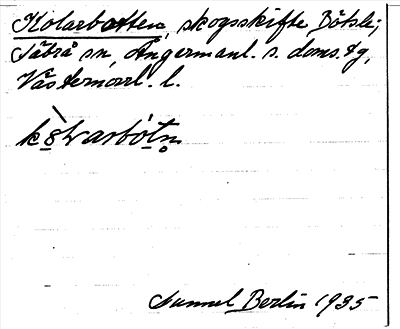 Kolarbotten, skogsskifte Bölsle;
Säbrå sn, Ångermanl. s. doms. tg,
Västernorrl. l.
Samuel Berlin 1935